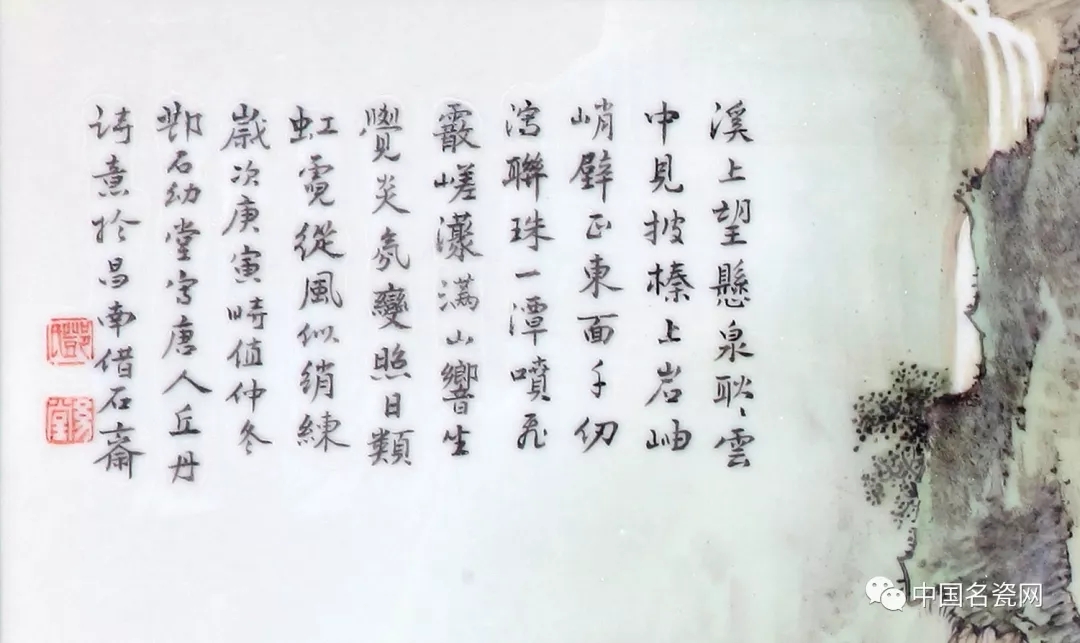 溪上望懸泉耿〻雲
中見披榛上岩岫
峭壁正東面千仞
瀉聯珠一潭噴飛
霰嵯灇滿山響坐
覺炎氛變照日類
虹霓從風似綃練
歲次庚寅時值仲冬
石幼堂寫唐人丘丹
詩意於昌南借石齋
中国名瓷网